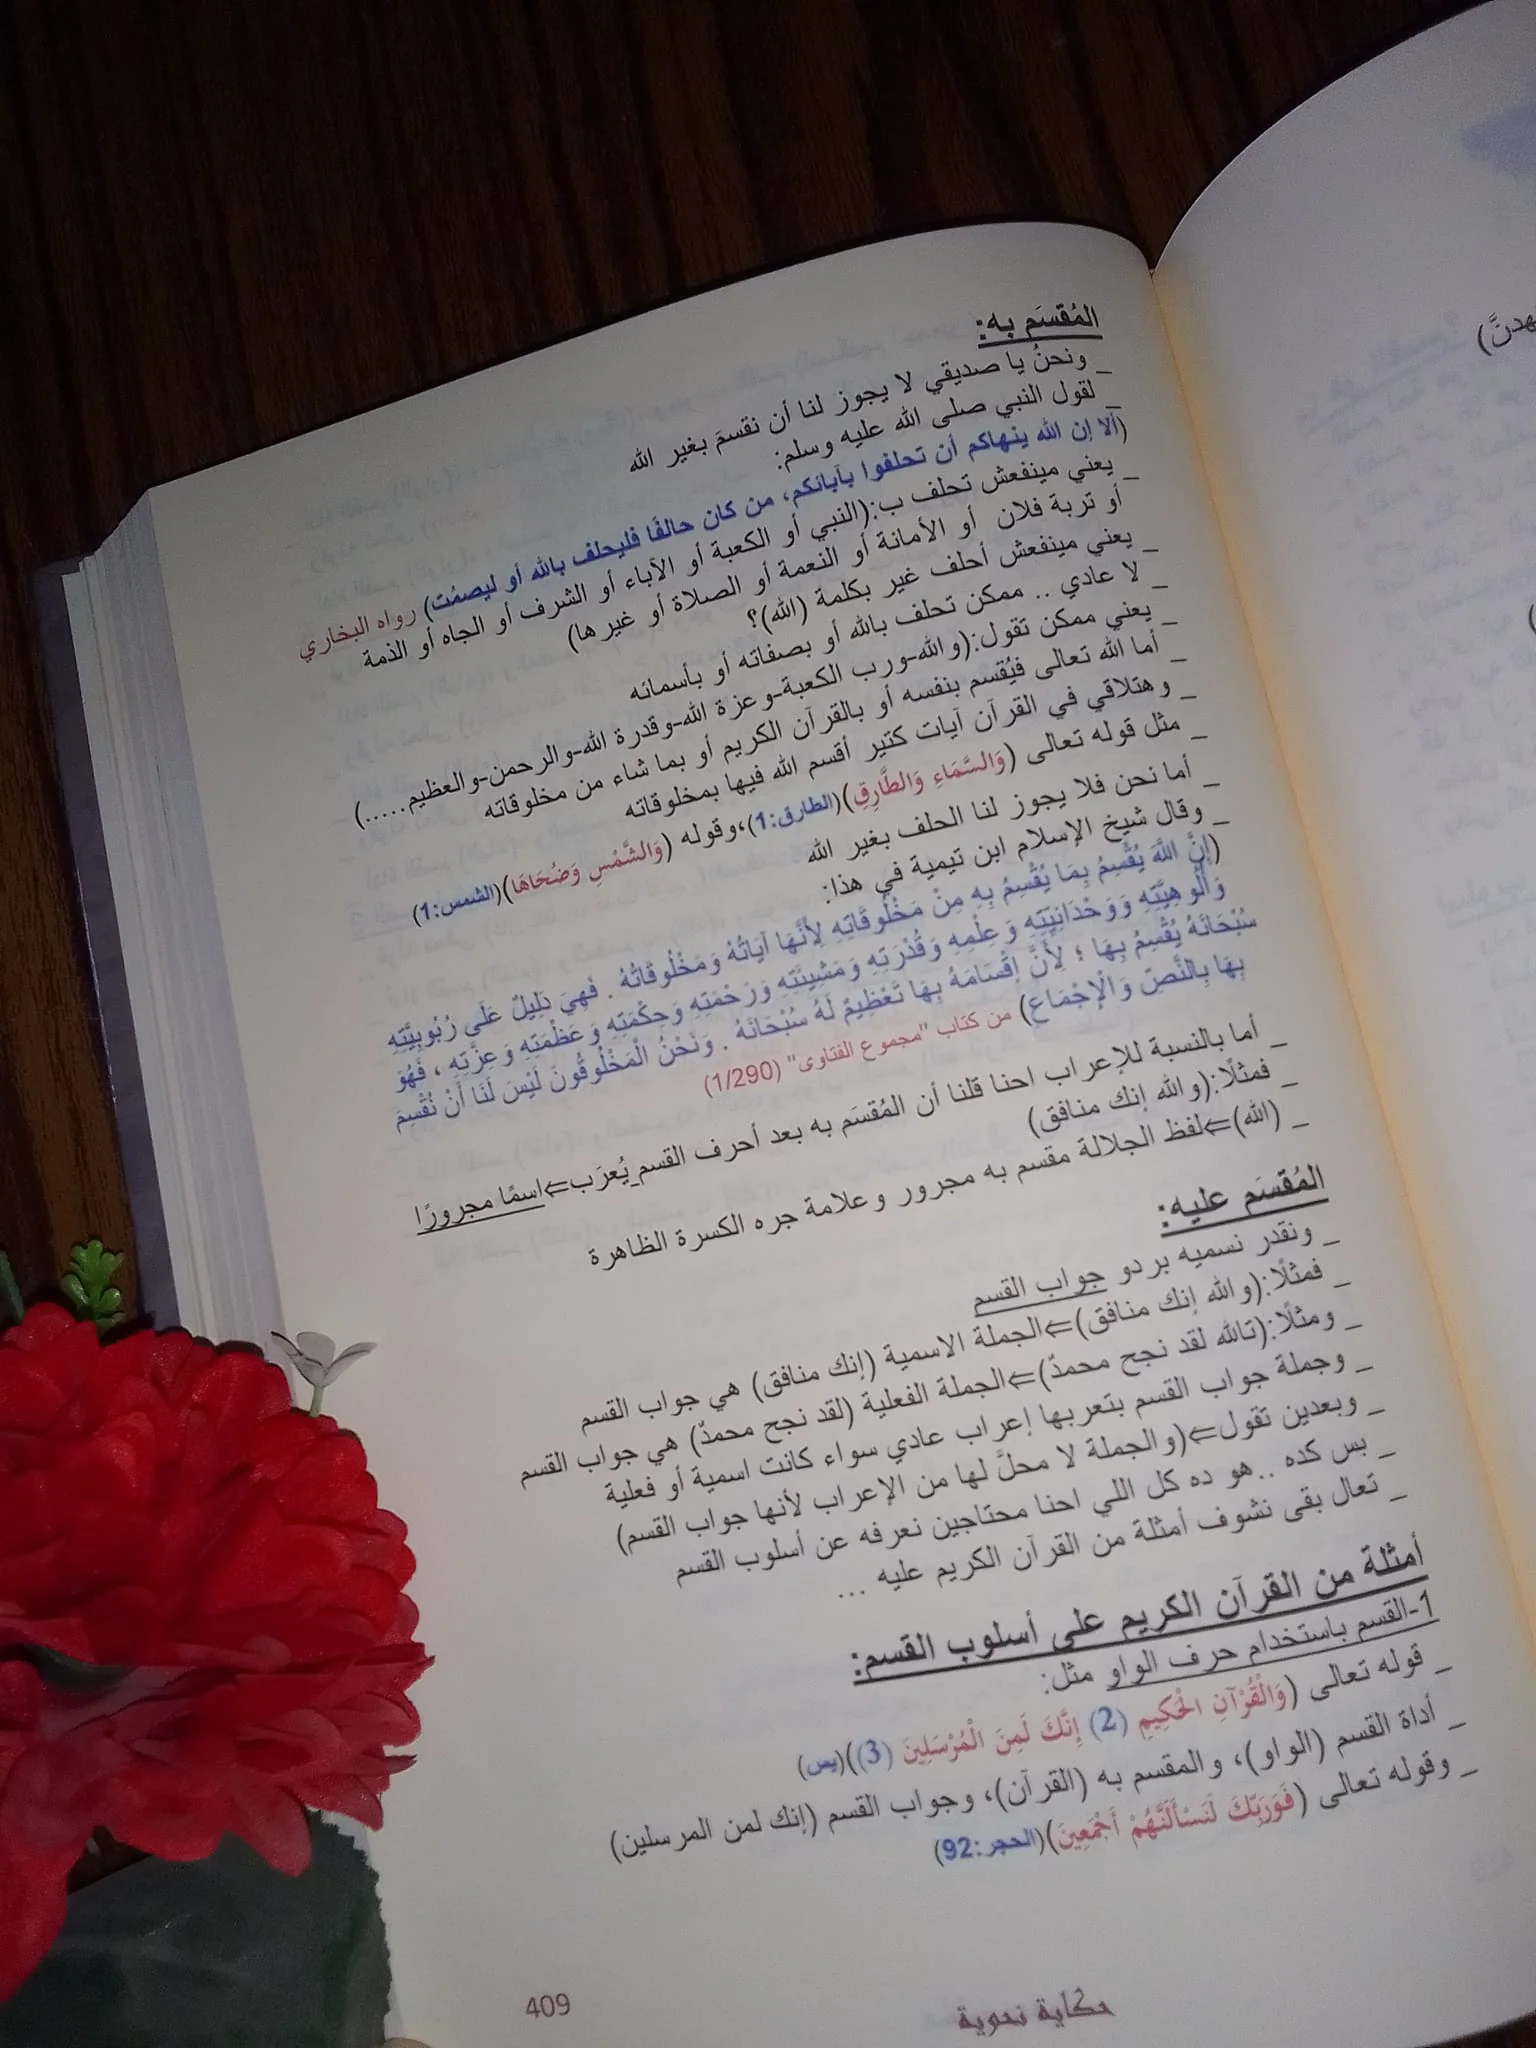 المُقسَم به:
_ ونحنُ يا صديقي لا يجوز لنا أن نقسمَ بغير الله
_ لقول النبي صلى الله عليه وسلم:
(ألا إن الله ينهاكم أن تحلفوا بآبائكم، من كان حالفًا فليحلف بالله أو ليصمُت) رواه البخاري
_ يعني مينفعش تحلف ب:(النبي أو الكعبة أو الأباء أو الشرف أو الجاه أو الذمة
أو تربة فلان أو الأمانة أو النعمة أو الصلاة أو غيرها)
_ يعني مينفعش أحلف غير بكلمة (الله)؟
_ لا عادي .. ممكن تحلف بالله أو بصفاته أو بأسمائه
_ يعني ممكن تقول:(والله-ورب الكعبة-وعزة الله-وقدرة الله-والرحمن-والعظيم.....)
_ أما الله تعالى فيُقسم بنفسه أو بالقرآن الكريم أو بما شاء من مخلوقاته
_ وهتلاقي في القرآن آيات كتير أقسم الله فيها بمخلوقاته
_ مثل قوله تعالى (وَالسَّمَاءِ وَالطَّارِقِ)(الطارق:1)،وقوله (وَالشَّمْسِ وَضُحَاهَا)(الشمس:1)
_ أما نحن فلا يجوز لنا الحلف بغير الله
_ وقال شيخ الإسلام ابن تيمية في هذا:
(إِنَّ اللَّهَ يُقْسِمُ بِمَا يُقْسِمُ بِهِ مِنْ مَخْلُوقَاتِهِ لِأَنَّهَا آيَاتُهُ وَمَخْلُوقَاتُهُ . فَهِيَ دَلِيلٌ عَلَى رُبُوبِيَّتِهِ
وَأُلُوهِيَّتِهِ وَوَحْدَانِيِّتِهِ وَعِلْمِهِ وَقُدْرَتِهِ وَمَشِيئَتِهِ وَرَحْمَتِهِ وَحِكْمَتِهِ وَعَظْمَتِهِ وَعِزَّتِهِ ، فَهُوَ
سُبْحَانَهُ يُقْسِمُ بِهَا ؛ لِأَنَّ إقْسَامَهُ بِهَا تَعْظِيمٌ لَهُ سُبْحَانَهُ . وَنَحْنُ الْمَخْلُوقُونَ لَيْسَ لَنَا أَنْ نُقْسِمَ
بِهَا بِالنَّصِّ وَالْإِجْمَاعِ) من كتاب "مجموع الفتاوى" (1/290)
_ أما بالنسبة للإعراب احنا قلنا أن المُقسَم به بعد أحرف القسم يُعرَب⇐اسمًا مجرورًا
_ فمثلًا:(والله إنك منافق)
_ (الله)⇐لفظ الجلالة مقسم به مجرور وعلامة جره الكسرة الظاهرة
المُقسَم عليه:
_ ونقدر نسميه بردو جواب القسم
_ فمثلًا:(والله إنك منافق)⇐الجملة الاسمية (إنك منافق) هي جواب القسم
_ ومثلًا:(تالله لقد نجح محمدٌ)⇐الجملة الفعلية (لقد نجح محمدٌ) هي جواب القسم
_ وجملة جواب القسم بتعربها إعراب عادي سواء كانت اسمية أو فعلية
_ وبعدين تقول⇐(والجملة لا محلَّ لها من الإعراب لأنها جواب القسم)
_ بس كده ..هو ده كل اللي احنا محتاجين نعرفه عن أسلوب القسم
_ تعال بقى نشوف أمثلة من القرآن الكريم عليه ...
أمثلة من القرآن الكريم على أسلوب القسم:
1-القسم باستخدام حرف الواو مثل:
_ قوله تعالى (وَالْقُرْآنِ الْحَكِيمِ (2) إِنَّكَ لَمِنَ الْمُرْسَلِينَ (3))(يس)
_ أداة القسم (الواو)، والمقسم به (القرآن)، وجواب القسم (إنك لمن المرسلين)
_ وقوله تعالى (فَوَرَبِّكَ لَنَسْأَلَنَّهُمْ أَجْمَعِينَ)(الحجر:92)
حكاية نحوية
409